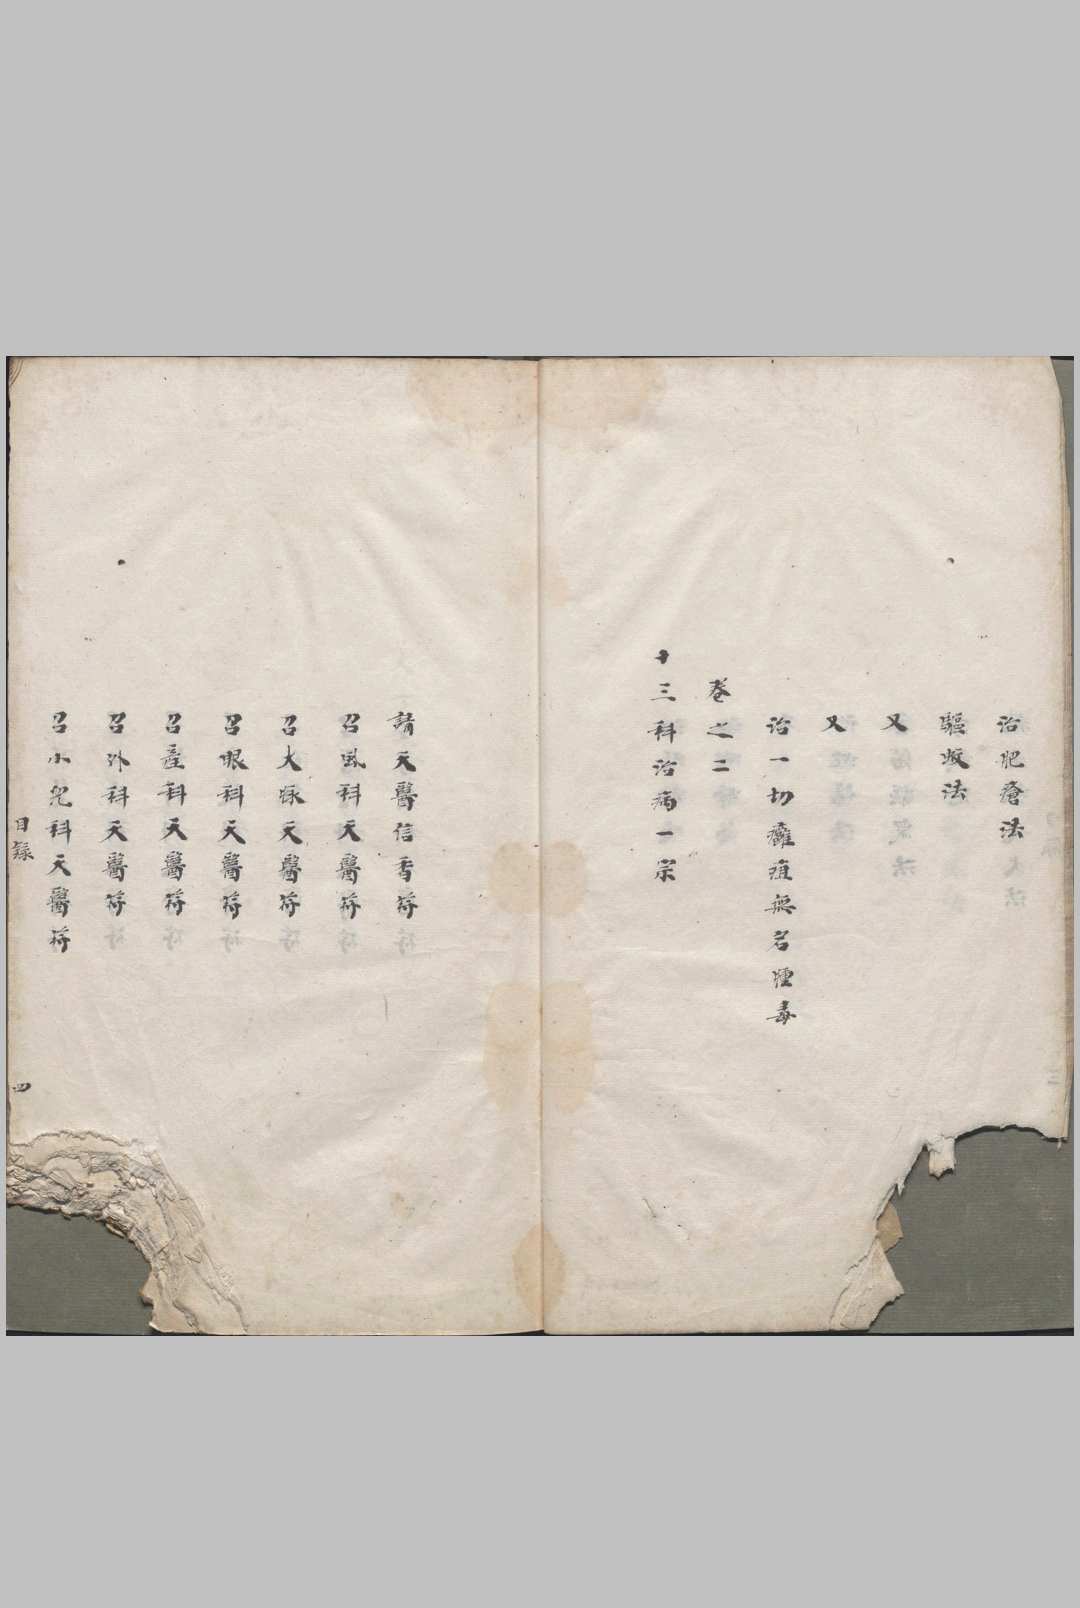 治肥瘡法
驅蚊法
又
又
治一切癰疽無名腫毒
卷之二
十三科治病一宗
請天醫信香符
召風科天醫符
召大脉天醫符
召眼科天醫符
召產科天醫符
召外科天醫符
召小兒科天醫符
目錄
四